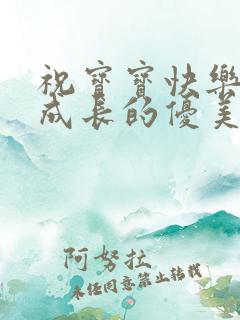 祝寶寶快樂
成長的優美
阿努拉
未經同意禁止轉載